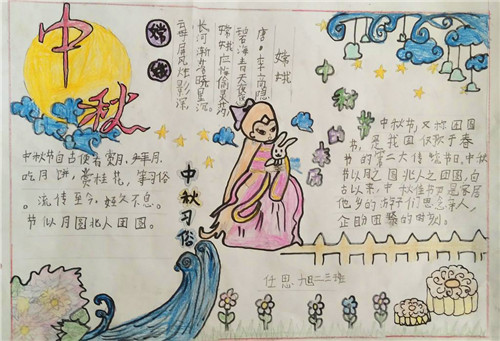 中秋
嫦娥
嫦娥
唐·李商隐
碧海青天夜夜
嫦娥应悔偷灵药，
长河渐落晓星沉。
云母屏风烛影深
中秋节自古便有赏月、拜月、
吃月饼，赏桂花，等习俗
，流传至今，经久不息。
节以月圆北人团圆。
中秋习俗
中秋节的来历
中秋节，又称团圆
节，是我国仅次于春
节的第二大传统节日，中秋
节以月之圆北人之团圆，自
古以来，中秋佳节
他乡的游子们思念亲人，
企盼团聚的时刻。
任思旭二三班